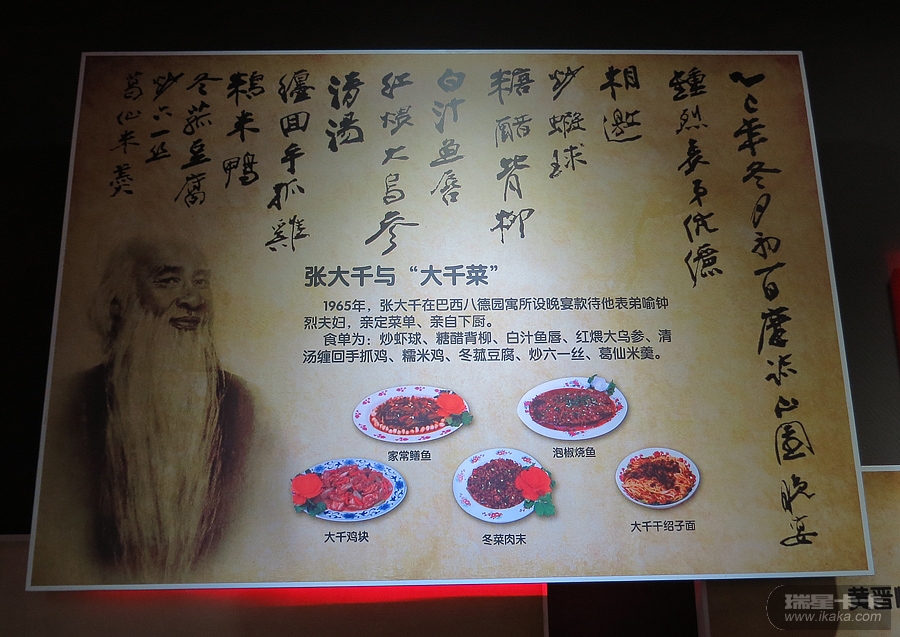 乙巳年冬月初百摩詰山園晚宴
鍾烈表弟伉儷
相邀
炒蝦球
糖醋背柳
白汁鱼唇
红煨大烏参
清湯
纏回手抓雞
糯米鴨
冬菰豆腐
炒六一丝
葛仙米羹
张大千与“大千菜”
1965年，张大千在巴西八德园寓所设晚宴款待他表弟喻钟
烈夫妇，亲定菜单、亲自下厨。
食单为：炒虾球、糖醋背柳、白汁鱼唇、红煨大乌参、清
汤缠回手抓鸡、糯米鸡、冬菰豆腐、炒六一丝、葛仙米羹。
家常鳝鱼
泡椒烧鱼
大千鸡块
冬菜肉末
大千干绍子面
黄晋
瑞星卡卡
www.ikaka.com